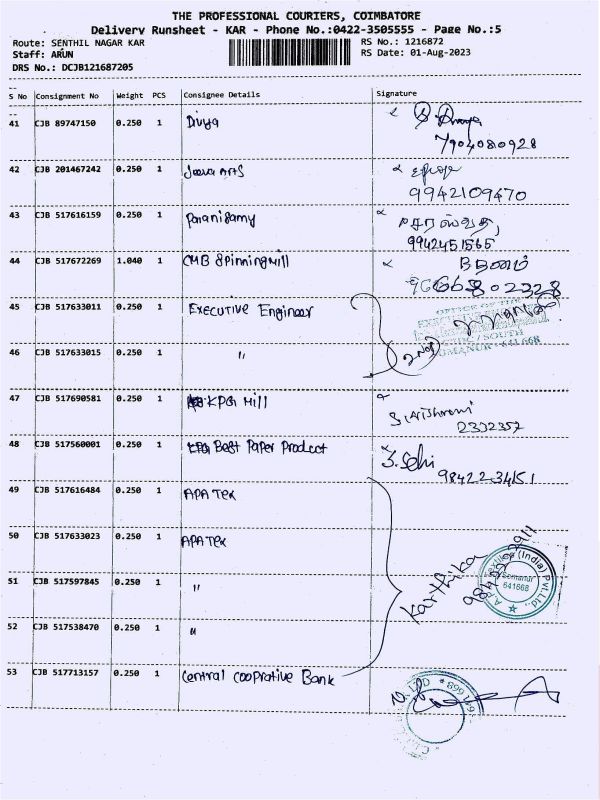 THE PROFESSIONAL COURIERS, COIMBATORE
Delivery Runsheet - KAR - Phone No.:0422-3505555 - Page No.:5
Route: SENTHIL NAGAR KAR
RS No.: 1216872
Staff: ARUN
RS Date: 01-Aug-2023
DRS No.: DCJB121687205
S No Consignment No Weight PCS Consignee Details Signature
41 CJB 89747150 0.250 1 Divya
7904080928
42 CJB 201467242 0.250 1
9942109470
43 CJB 517616159 0.250 1 Paranisamy
9942451565
44 CJB 517672269 1.040 1 CMB Spinning Mill
45 CJB 517633011 0.250 1 EXECUTIVE Engineer
OFFICE OF THE
46 CJB 517633015 0.250 1 "
SOUTH
641668
47 CJB 517690581 0.250 1 KPG Mill
2332357
48 CJB 517560001 0.250 1 Best Paper Product
98422-34151
49 CJB 517616484 0.250 1 APA Tex
50 CJB 517633023 0.250 1 APA Tex
Karthika
51 CJB 517597845 0.250 1 "
Textiles (India) Pvt.Ltd.
Somanur
641668
52 CJB 517538470 0.250 1 "
53 CJB 517713157 0.250 1 Central Cooprative Bank